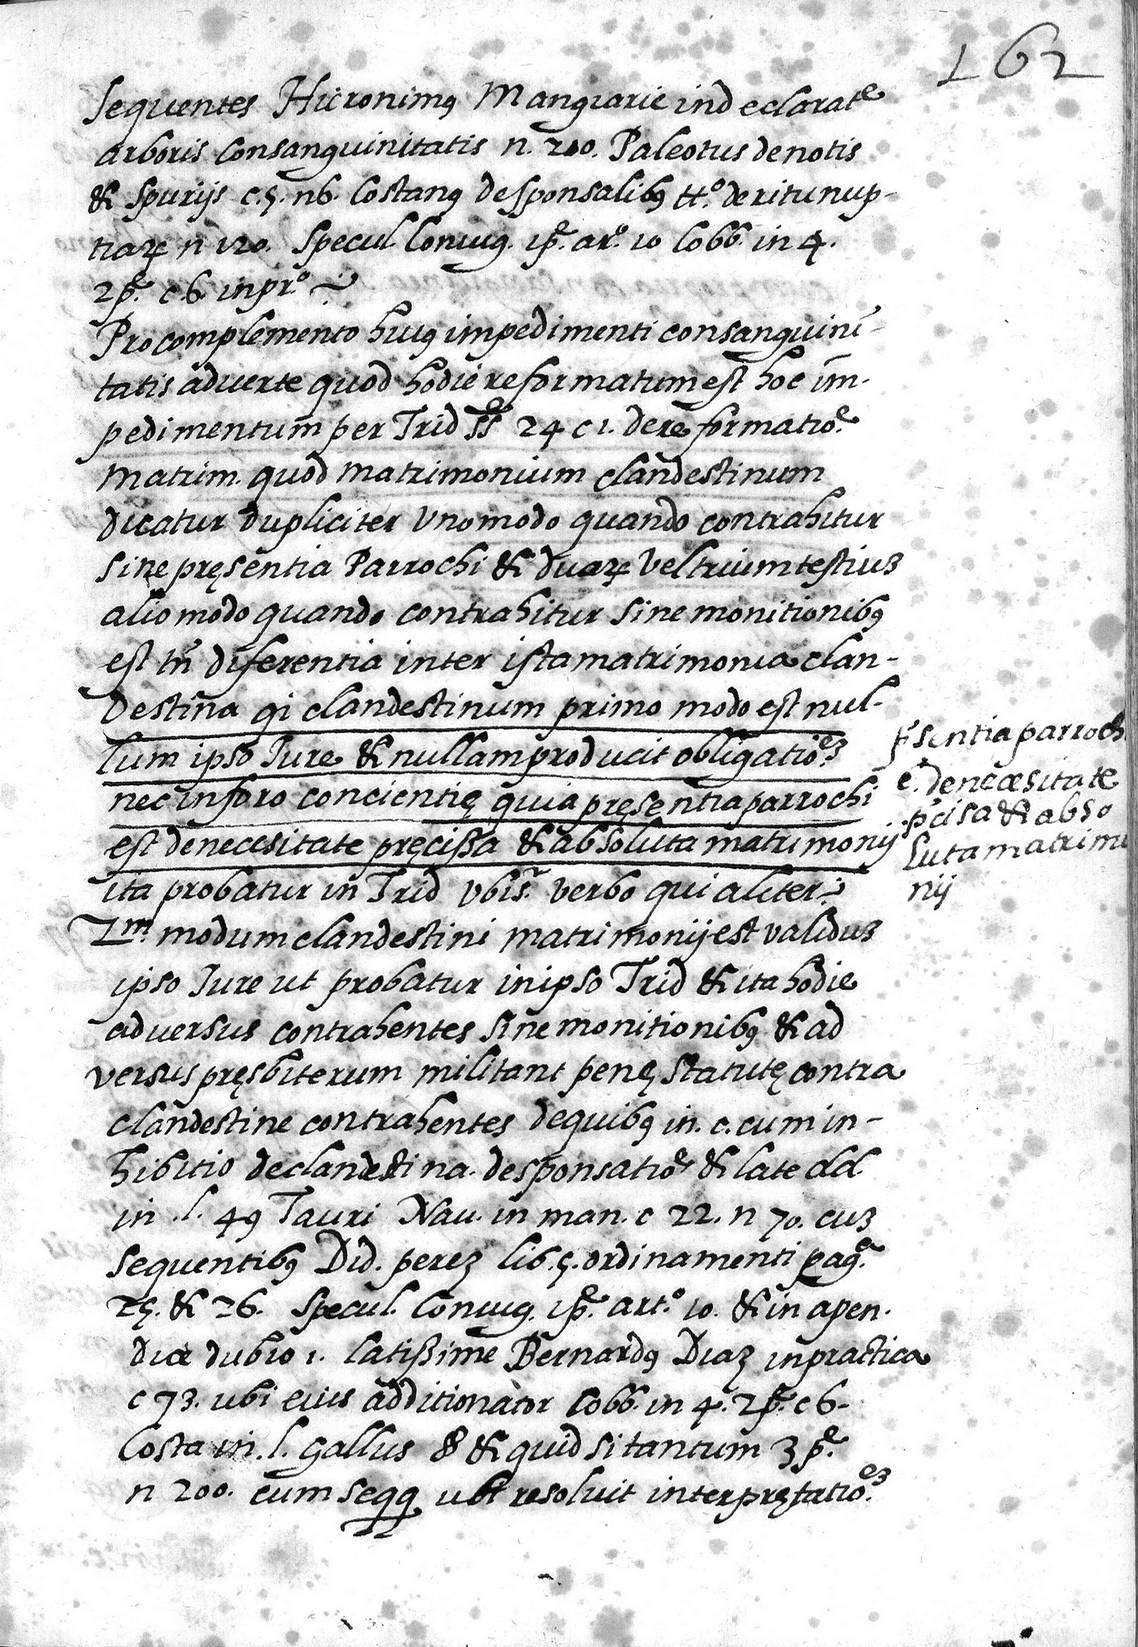 162
sequentes Hieronimꝰ Mangiarie in declarat.e
arboris consanguinitatis n. 200. Paleotus de notis
& spurijs c. 5. n 6. Costanꝰ de sponsalibꝰ tt.o de ritu nup-
tiaꝝ n 120. Specul. Coniug. 1 p.e ar.o 10 Cobb. in 4.
2 p.e c 6. in pr.o
Pro complemento huiꝰ impedimenti consanguini-
tatis aduerte quod hodie reformatum est hoc im-
pedimentum per Trid ss.e 24 c 1. de reformatio.e
Matrim. quod Matrimonium clandestinum
dicatur dupliciter Uno modo quando contrahitur
sine pręsentia Parrochi & duaꝝ Vel trium testiuȝ
alio modo quando contrahitur sine monitionibꝰ
est tñ diferentia inter ista matrimonia clan-
destina qi clandestinum primo modo est nul-
lum ipso Jure & nullam producit obligatio.eȝ
nec in foro concientię quia pręsentia parrochi
est de necesitate pręcissa & absoluta matrimonij
p̃sentia parroch
e. de necæsitate
p̃cisa & abso
luta matrimo
nij
ita probatur in Trid Vbi s.r verbo qui aliter
2.m modum clandestini matrimonij est validuȝ
ipso Jure ut probatur in ipso Trid & ita hodie
adversus contrahentes sine monitionibꝰ & ad
versus pręsbiterum militant penę statutę contra
clandestine contrahentes de quibꝰ in. c. cum in-
hibitio de clandestina. desponsatio.e & late dd
in .l. 49 Tauri Nau. in man. c 22. n 70. cuȝ
sequentibꝰ Did. perez lib. 5. ordinamenti pag.e
25. & 26. Specul. Coniug. 1 p.e art.o 10. & in apen.
dice dubio 1. latissime Bernardꝰ Diaz in practica
c 73. ubi eius additionator Cobb. in 4. 2 p.e c 6-
Costa in .l. Gallus § & quid si tantum 3 p.e
n 200. cum seqq ubi resoluit interpretatio.eȝ